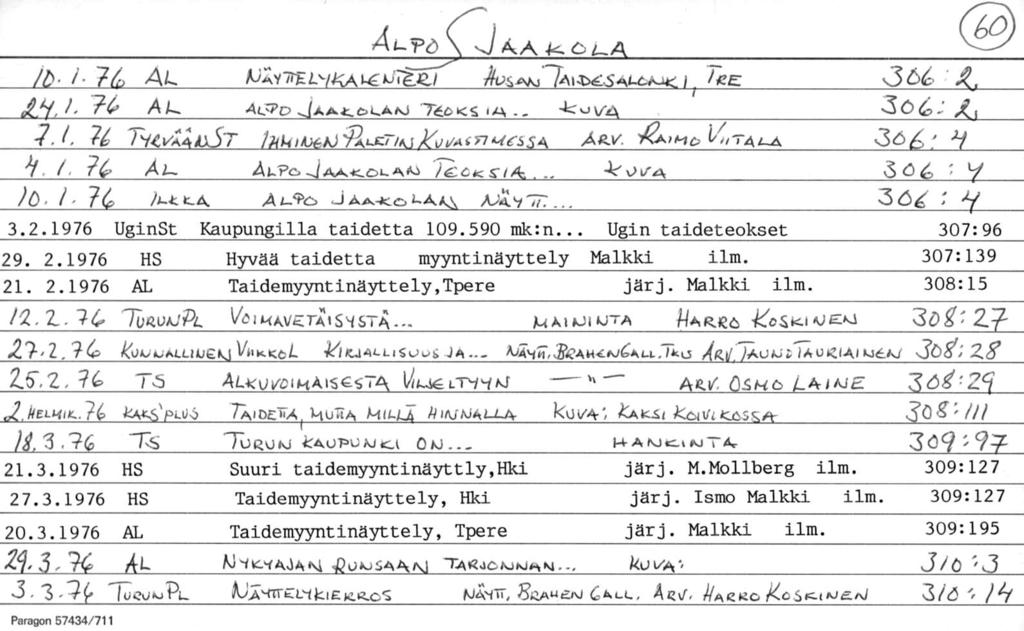 ALPO JAAKOLA 60
10.1.76 AL NÄYTTELYKALENTERI HUSAN TAIDESALONKI, TRE 306:2
24.1.76 AL ALPO JAAKOLAN TEOKSIA.. KUVA 306:2
7.1.76 TYRVÄÄNST IHMINEN PALETIN KUVASTIMESSA ARV. RAIMO VIITALA 306:4
4.1.76 AL ALPO JAAKOLAN TEOKSIA... KUVA 306:4
10.1.76 ILKKA ALPO JAAKOLAN NÄYTT.... 306:4
3.2.1976 UginSt Kaupungilla taidetta 109.590 mk:n... Ugin taideteokset 307:96
29. 2.1976 HS Hyvää taidetta myyntinäyttely Malkki ilm. 307:139
21. 2.1976 AL Taidemyyntinäyttely,Tpere järj. Malkki ilm. 308:15
12.2.76 TURUNPL VOIMAVETÄISYSTÄ... MAININTA HARRO KOSKINEN 308:27
27.2.76 KUNNALLINEN VIIKKOL KIRJALLISUUS JA... NÄYTT, BRAHENGALL.TKU ARV. TAUNO TAURIAINEN 308:28
25.2.76 TS ALKUVOIMAISESTA VILJELTYYN —"— ARV. OSMO LAINE 308:29
2.HELMIK.76 KAKS'PLUS TAIDETTA, MUTTA MILLÄ HINNALLA KUVA: KAKSI KOIVIKOSSA 308:111
18.3.76 TS TURUN KAUPUNKI ON... HANKINTA 309:97
21.3.1976 HS Suuri taidemyyntinäyttly,Hki järj. M.Mollberg ilm. 309:127
27.3.1976 HS Taidemyyntinäyttely, Hki järj. Ismo Malkki ilm. 309:127
20.3.1976 AL Taidemyyntinäyttely, Tpere järj. Malkki ilm. 309:195
29.3.76 AL NYKYAJAN RUNSAAN TARJONNAN... KUVA: 310:3
3.3.76 TURUNPL NÄYTTELYKIERROS NÄYTT, BRAHEN GALL. ARV. HARRO KOSKINEN 310:14
Paragon 57434/711